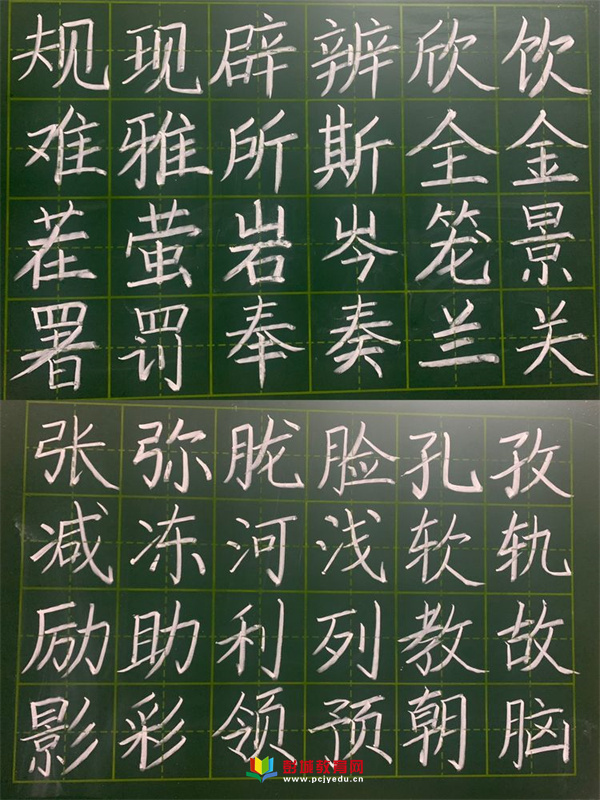 规现辟辨欣饮
难雅所斯全金
茬萤岩岑笼景
署罚奉奏兰关
张弥胧脸孔孜
减冻河浅软轨
励助利列教故
影彩领预朝脑
彭城教育网
www.pcjyedu.cn